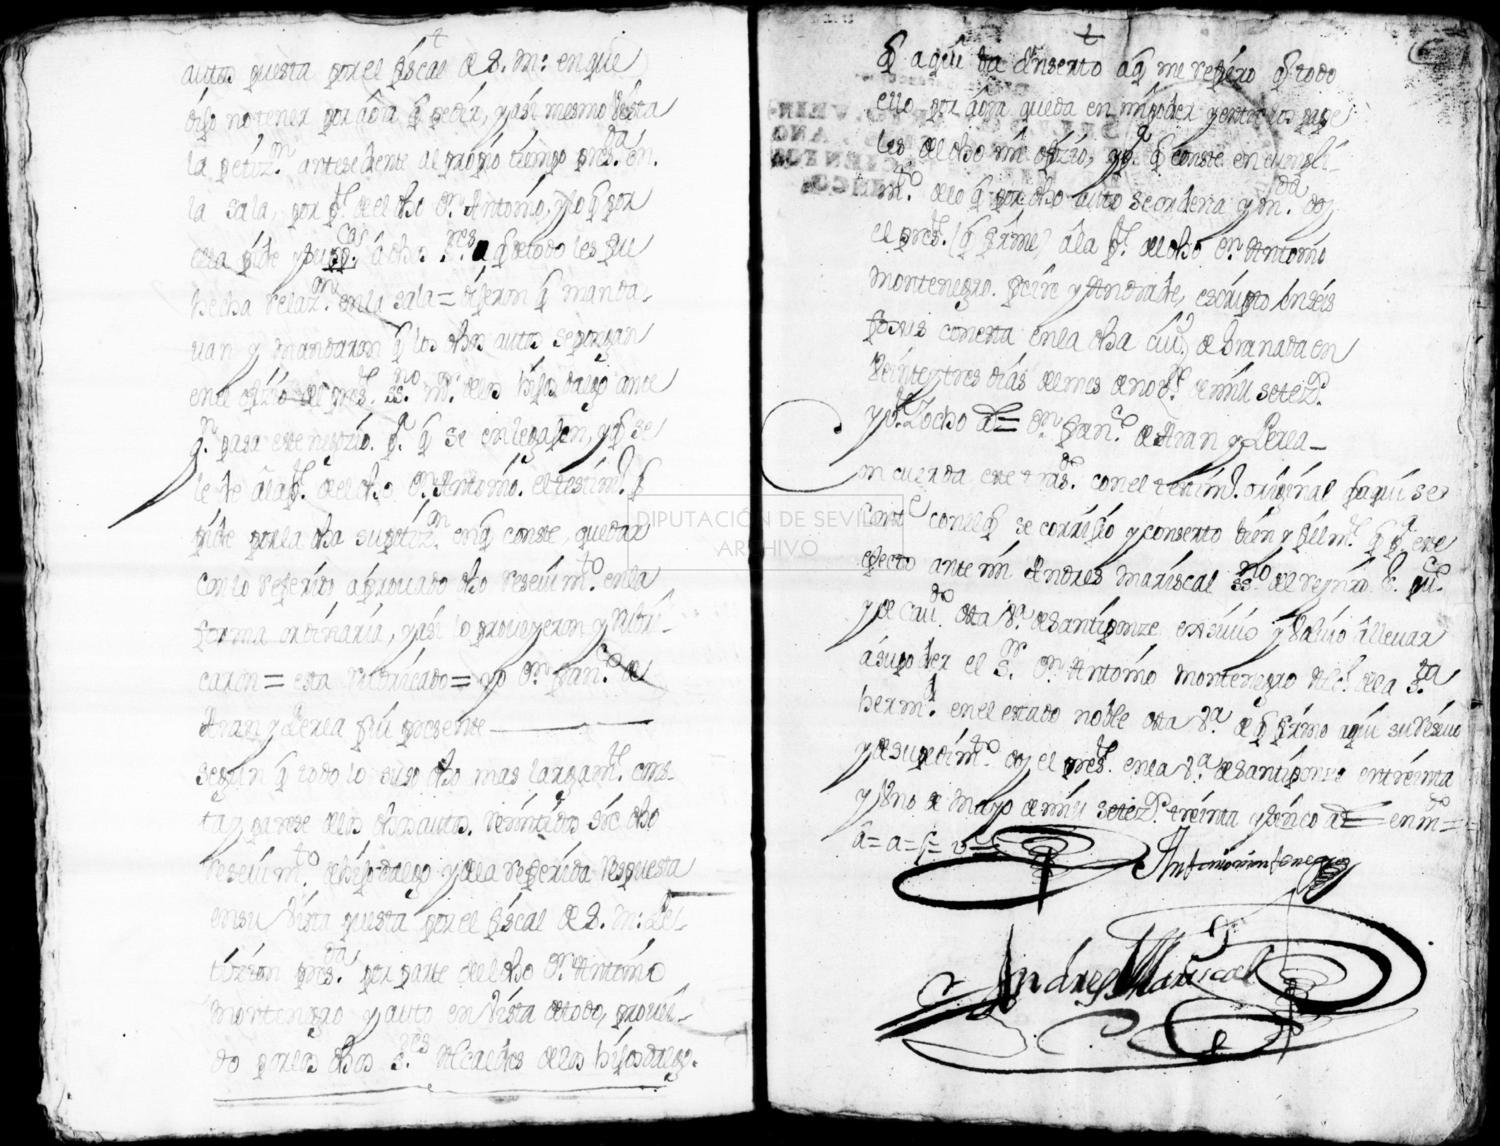 autos puesta por el fiscal de S. M: en que
dijo no tener por aora q pedir, y asi mesmo Vista
la petiz.on antesedente al propio tiempo pres.da en
la sala, por p.te de el dho Dn Antonio, y lo q por
ella pide y sup.ca a dhos S.res a q de todo les fu
hecha relaz.on en la sala = dijeron q manda-
uan y mandaron q los dhos autos se pongan
en el ofizio del pres.te ss.no m.or de los hijos dalgo ante
q.n pasa este negozio. p.a q se enlegajen, y q se
le de a la p.te del dho Dn Antonio. el testim.o q
pide por la dha su petiz.on en q conste, quedar
con lo referido aprouado dho reseuim.to en la
forma ordinaria, y asi lo proueyeron y rubri-
caron = esta rubricado = yo Dn Fran.co de
Aran y Perea fui presente
segun q todo lo suso dho mas largam.te cons-
ta y parese de los dhos autos. remitidos sre dho
reseuim.to de hijodalgo y de la referida respuesta
en su Vista puesta por el fiscal de S. M: Pe-
tizion pres.da por parte del dho Dn Antonio
Montenegro y auto en Vista de todo, proueí-
do por los dhos S.res Alcaldes de los hijosdalgo.
q aqui va ynserto a q me refiero q todo
ello por aora queda en mi poder y entre los pape
les del dho mi ofizio, y p.a q conste en cumpli-
m.to de lo q por dho auto se ordena y m.da doy
el pres.te (q firme) a la p.te del dho Dn Antonio
Montenegro. Freire y Andrade, escripto en seis
fojas con esta en la dha ciu.d de Granada en
Veinte y tres dias del mes de nob.re de mill setez.os
y V.te y ocho a.s = Dn Fran.co de Aran y Perea
Concuerda este tras.do con el testim.o original q aqui se
con el q se corrijio y conserto bien y fielm.te q p.a este
efecto ante mi Andres Mariscal ss.no del rey nro S. pu.co
y de Cau.do desta V.a de Santiponze exsiuio y Voluio a lleuar
a su poder el S.r Dn Antonio Montenegro Alc.e de la S.ta
herm.d en el estado noble desta V.a de q firmo aqui su reseuo
y de su pedim.to doy el pres.te en la V.a de Santiponze en treinta
y Uno de Mayo de mill setez.os treinta y sinco a.s = enm.do =
a = a = f = v =
Antt Montenegro
Andres Mariscal
DIPUTACIÓN DE SEVILLA
ARCHIVO